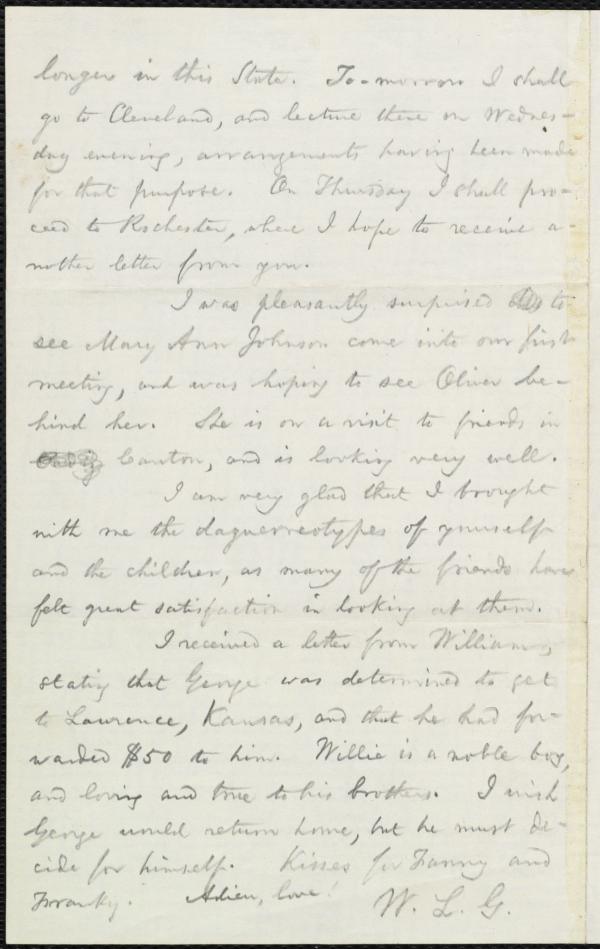 longer in this State. To-morrow I shall
go to Cleveland, and lecture there on Wednes-
day evening, arrangements having been made
for that purpose. On Thursday I shall pro-
ceed to Rochester, where I hope to receive a-
nother letter from you.
I was pleasantly surprised to
see Mary Ann Johnson come into our first
meeting, and was hoping to see Oliver be-
hind her. She is on a visit to friends in
Canton, and is looking very well.
I am very glad that I brought
with me the daguerreotypes of yourself
and the children, as many of the friends have
felt great satisfaction in looking at them.
I received a letter from William,
stating that George was determined to get
to Lawrence, Kansas, and that he had for-
warded $50 to him. Willie is a noble boy,
and loving and true to his brothers. I wish
George would return home, but he must de-
cide for himself. Kisses for Fanny and
Franky. Adieu, love!
W. L. G.